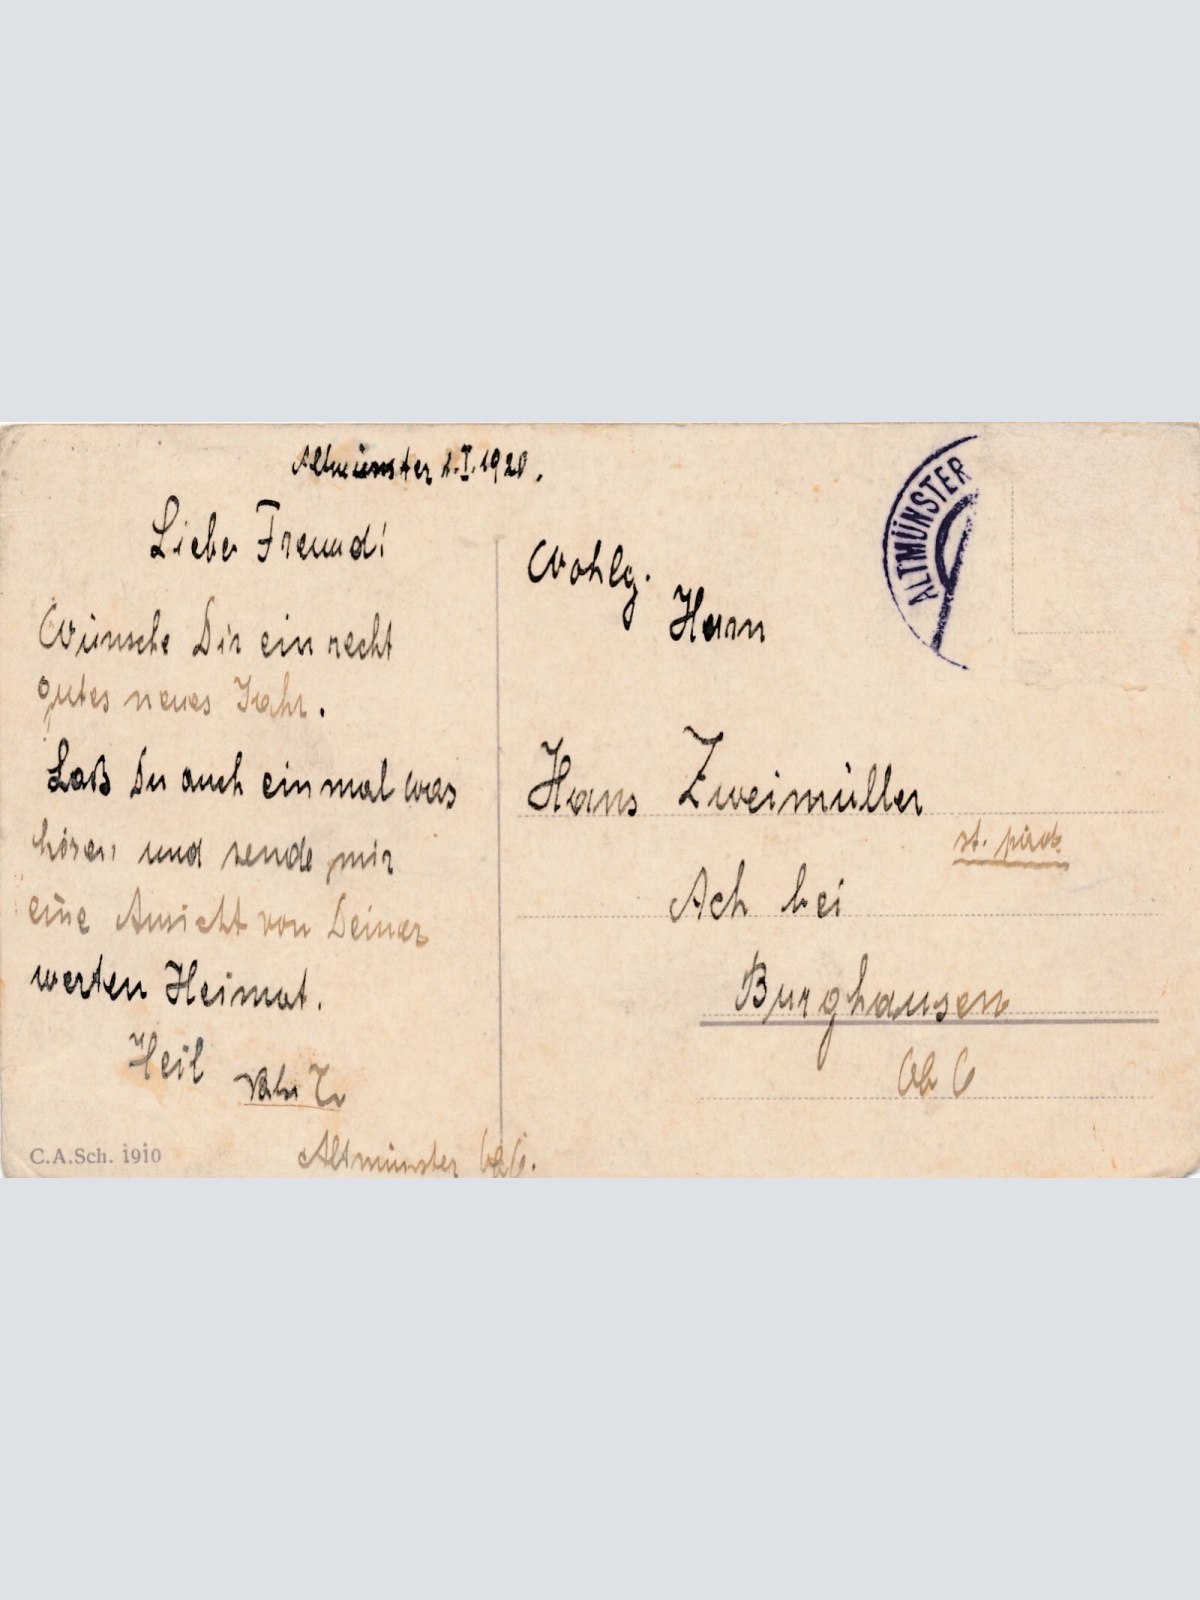 Altmünster 1.I.1920.
Liebe Freund!
Wünsche Dir ein recht
gutes neues Jahr.
Laß Du auch einmal was
hören und sende mir
eine Ansicht von Deiner
werten Heimat.
Heil
Altmünster
C.A.Sch. 1910
ALTMÜNSTER
Wohlg.
Herrn
Hans Zweimüller
Ach bei
Burghausen